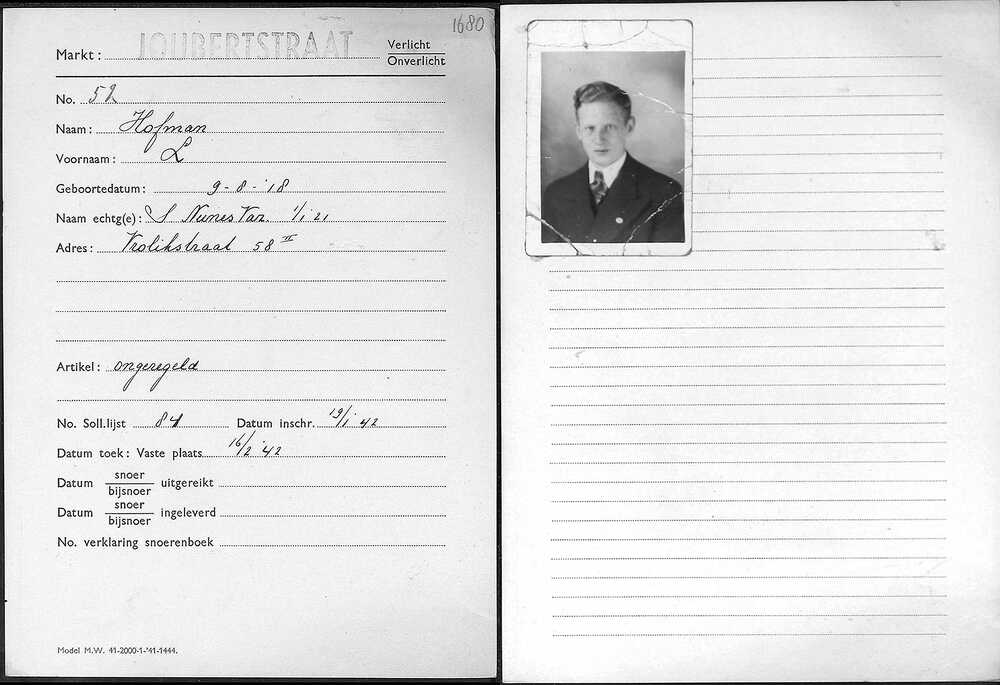 1680
Markt: JOUBERTSTRAAT Verlicht
Onverlicht
No. 52
Naam: Hofman
Voornaam: L
Geboortedatum: 9-8-'18
Naam echtg(e): S Nunes Vaz. 1/1 21
Adres: Vrolikstraat 58 II
Artikel: ongeregeld
No. Soll.lijst 84 Datum inschr. 19/1 42
Datum toek: Vaste plaats 16/2 '42
Datum snoer
bijsnoer uitgereikt
Datum snoer
bijsnoer ingeleverd
No. verklaring snoerenboek
Model M.W. 41-2000-1-'41-1444.